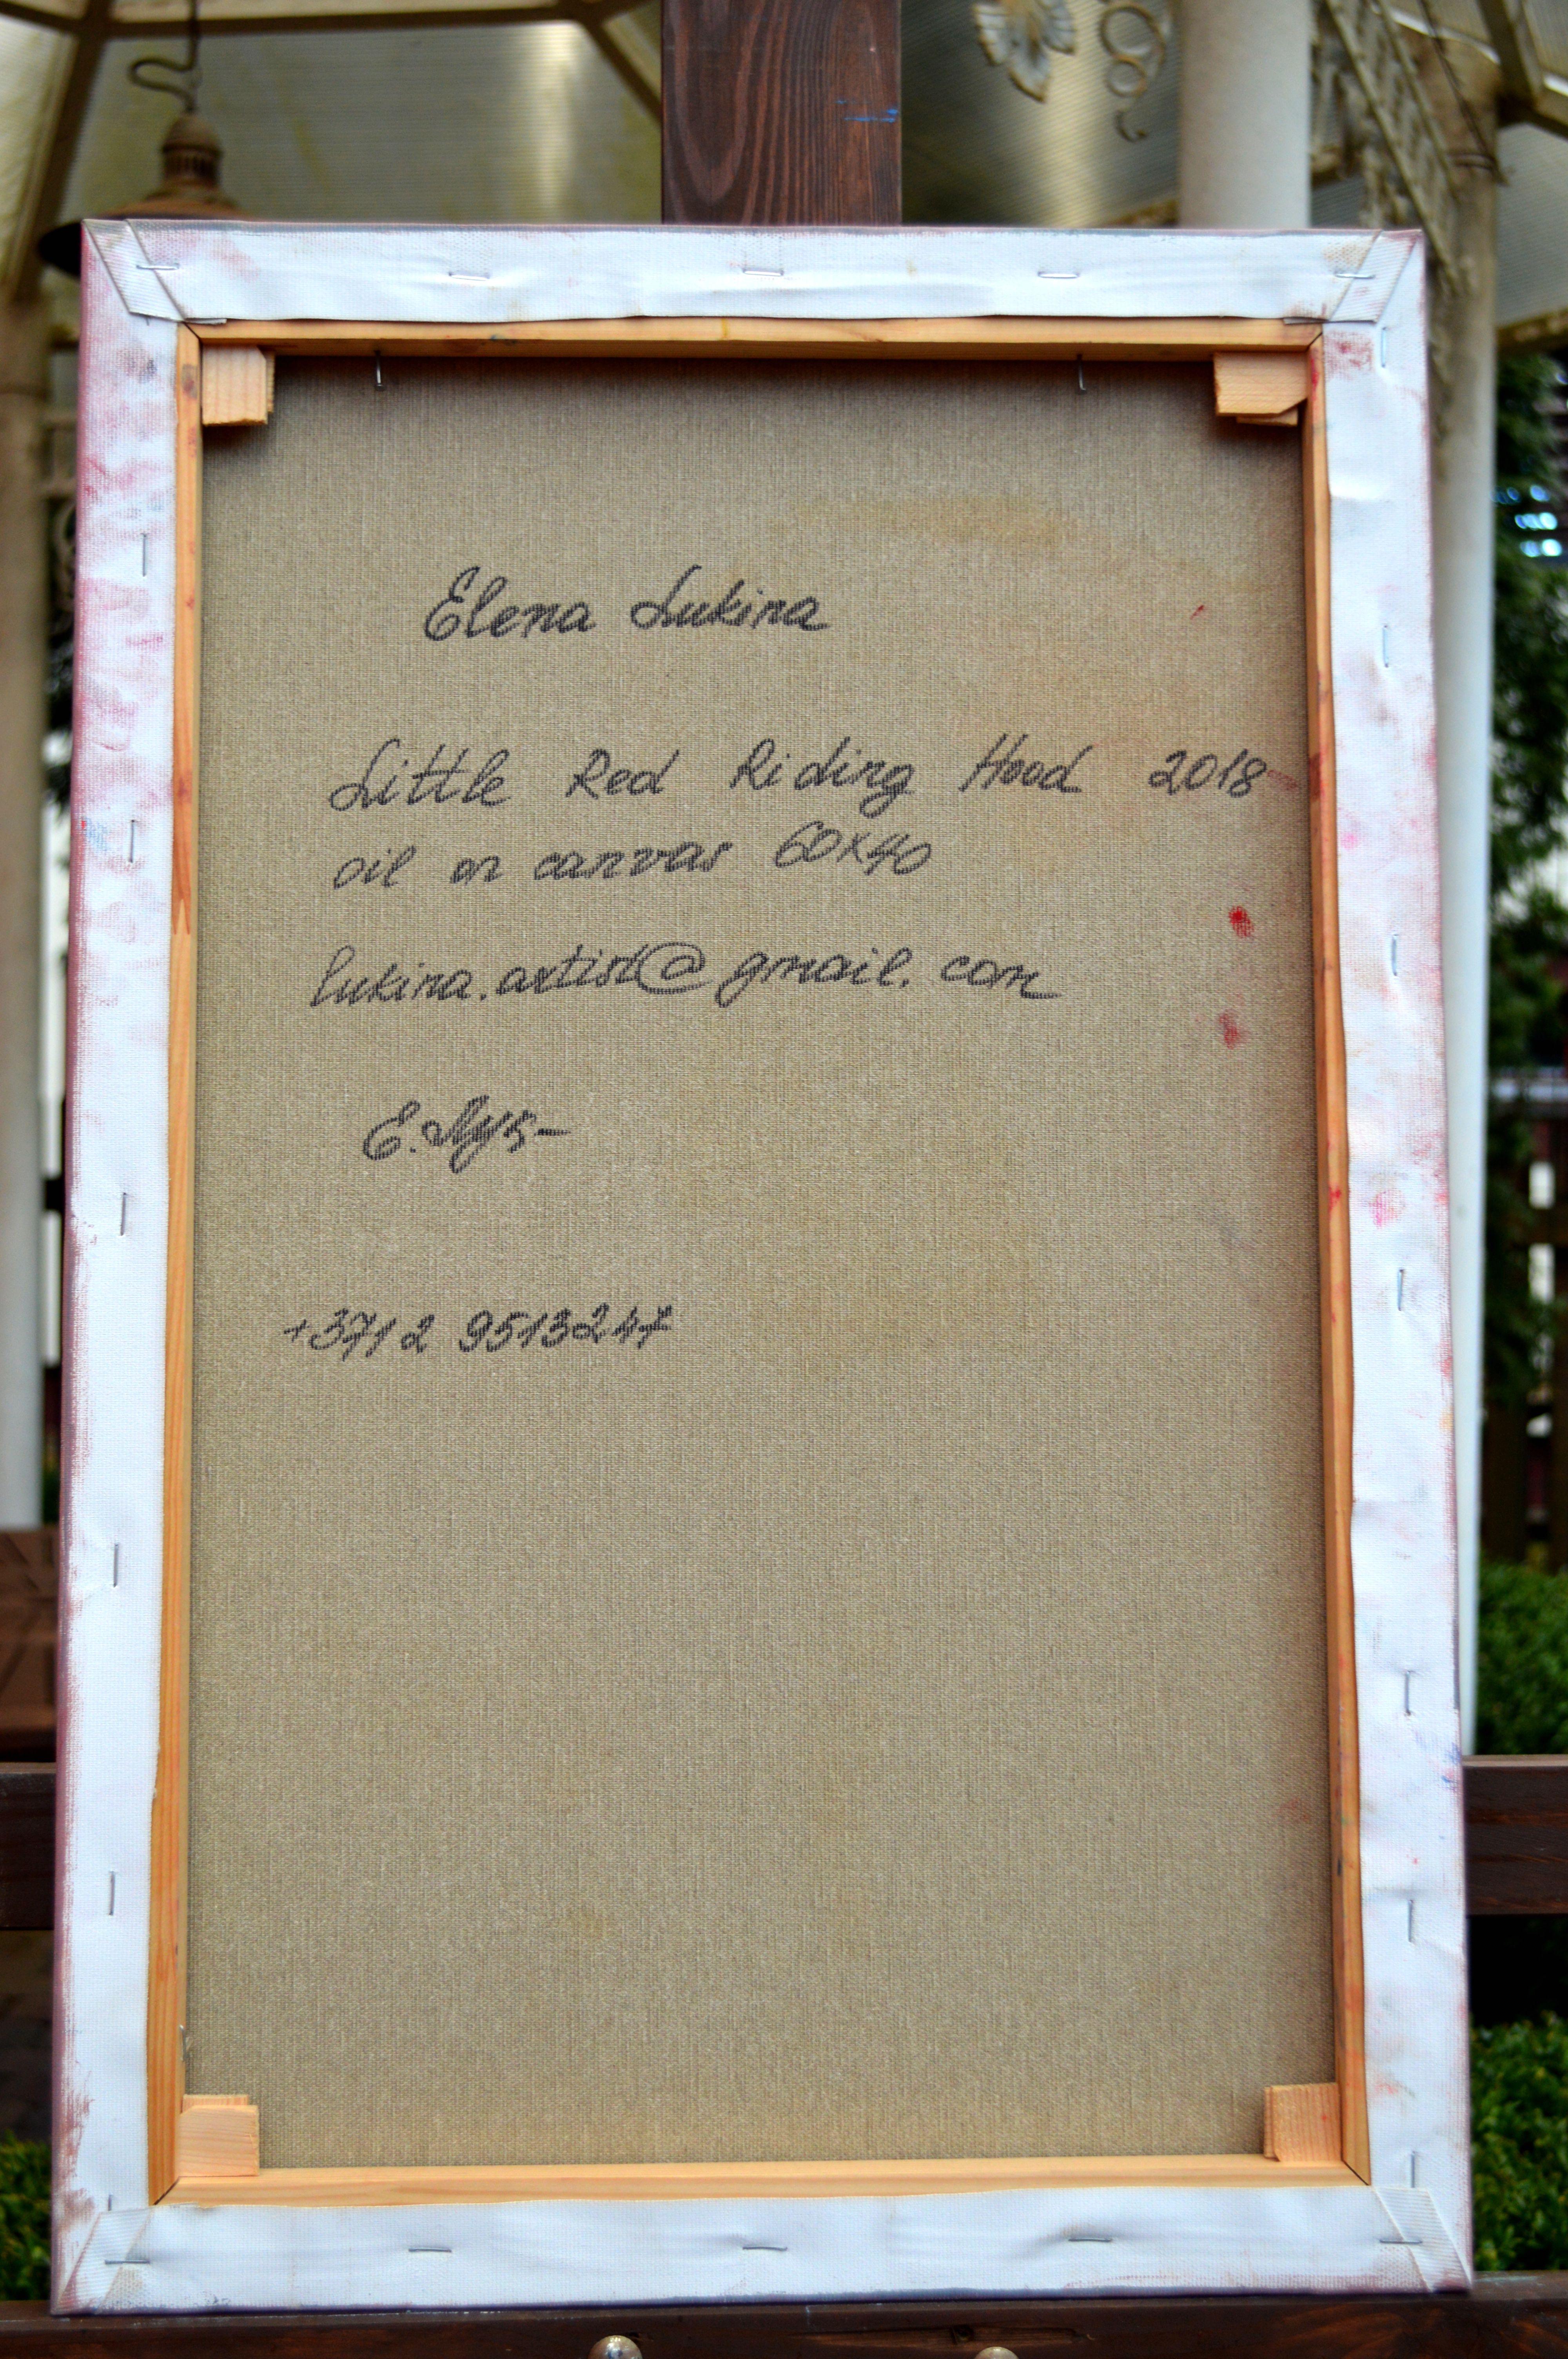 Elena Lukina
Little Red Riding Hood 2018
oil on canvas 60x40
lukina.artist@gmail.com
+3712 9513247